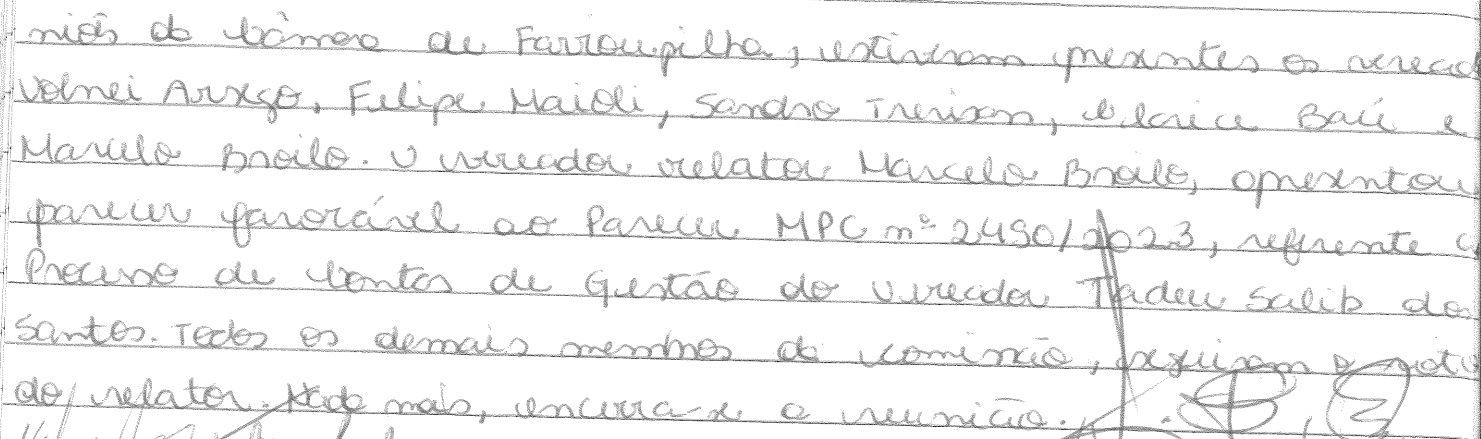 niões da Câmara de Farroupilha, estiveram presentes os veread
Volnei Arsego, Felipe Maioli, Sandro Trevisan, Clarice Baú e
Marcelo Broilo. O vereador relator Marcelo Broilo, apresentou
parecer favorável ao Parecer MPC nº 2.490/2023, referente a
Processo de Contas de Gestão do Vereador Tadeu Salib dos
Santos. Todos os demais membros da comissão, seguiram o voto
do relator. Nada mais, encerra-se a reunião.